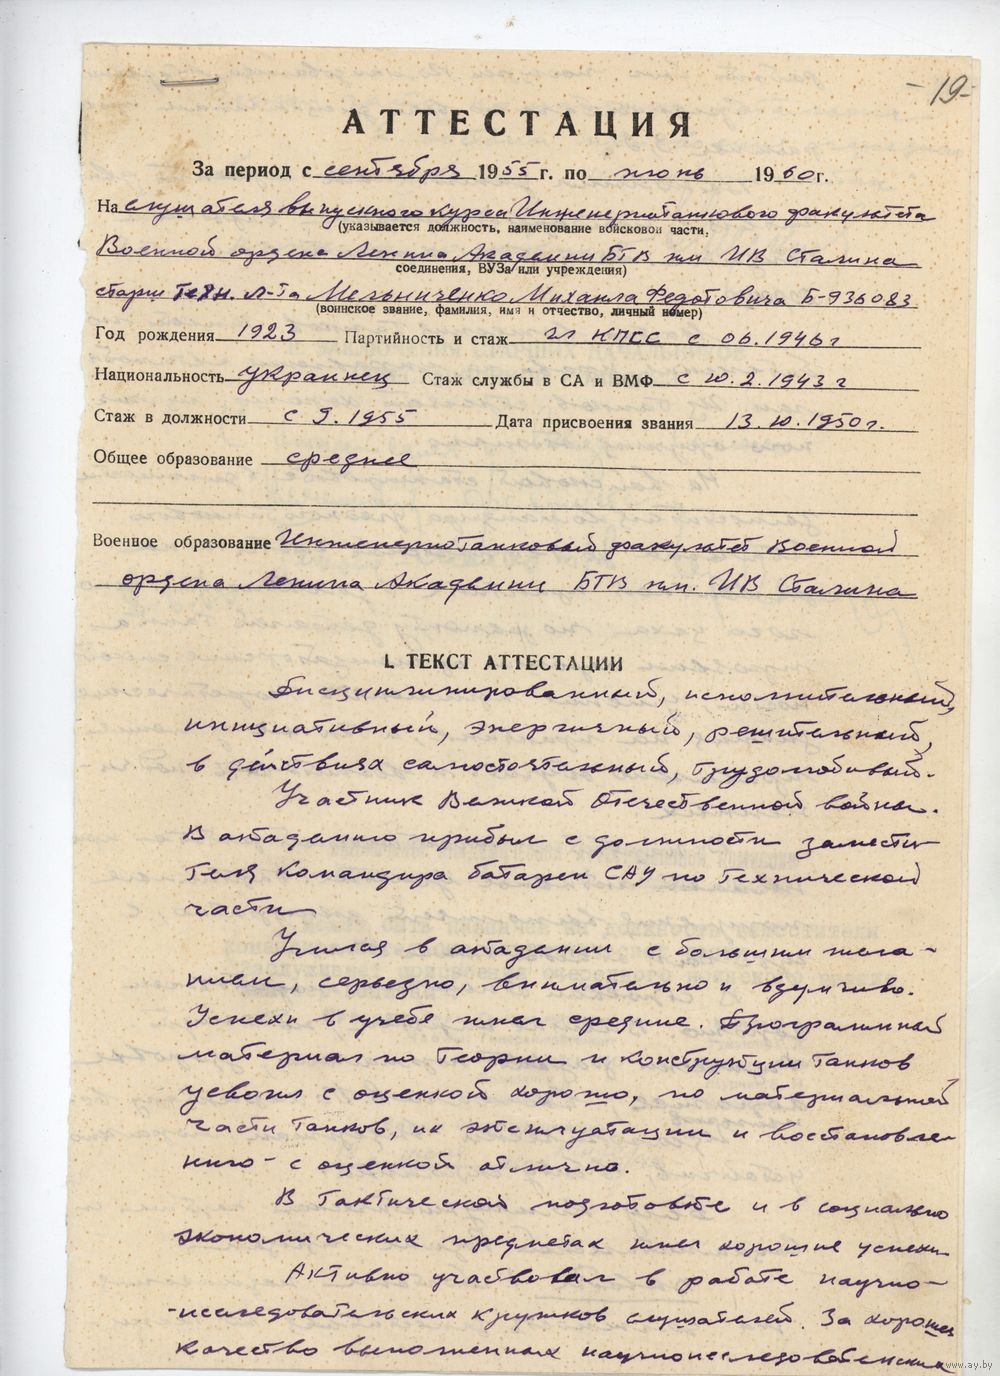 -19-
АТТЕСТАЦИЯ
За период с сентября 1955 г. по июнь 1960 г.
На слушателя выпускного курса Инженернотанкового факультета
(указывается должность, наименование войсковой части,
Военной ордена Ленина Академии БТВ им ИВ Сталина
соединения, ВУЗа или учреждения)
старш техн. л-та Мельниченко Михаила Федотовича Б-936083
(воинское звание, фамилия, имя и отчество, личный номер)
Год рождения 1923 Партийность и стаж чл КПСС с 06.1946 г
Национальность украинец Стаж службы в СА и ВМФ с 10.2.1943 г
Стаж в должности с 9.1955 Дата присвоения звания 13.10.1950 г.
Общее образование среднее
Военное образование Инженернотанковый факультет Военной
ордена Ленина Академии БТВ им. ИВ Сталина
I. ТЕКСТ АТТЕСТАЦИИ
Дисциплинированный, исполнительный,
инициативный, энергичный, решительный,
в действиях самостоятельный, трудолюбивый.
Участник Великой Отечественной войны.
В академию прибыл с должности замести-
теля командира батареи САУ по технической
части
Учился в академии с большим жела-
нием, серьезно, внимательно и вдумчиво.
Успехи в учебе имел средние. Программный
материал по теории и конструкции танков
усвоил с оценкой хорошо, по материальной
части танков, их эксплуатации и восстановле-
нию - с оценкой отлично.
В тактической подготовке и в социально
экономических предметах имел хорошие успехи
Активно участвовал в работе научно-
-исследовательских кружков слушателей. За хорошее
качество выполненных научноисследовательских
www.ay.by